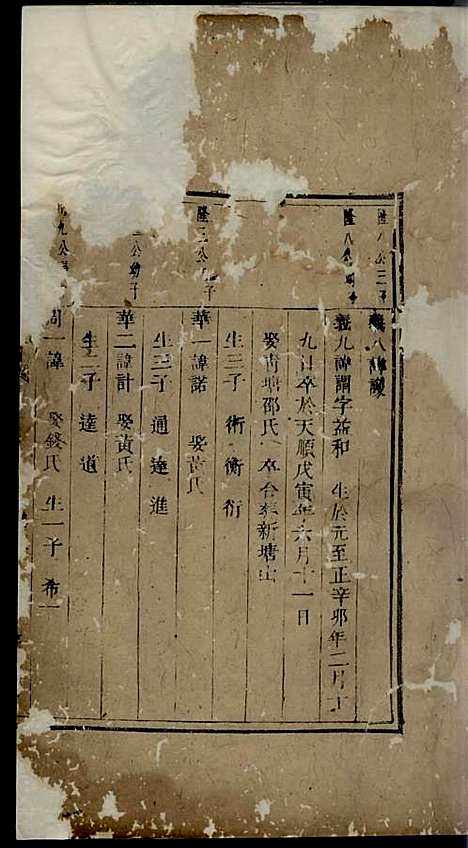 隆八公三子
義八諱謖
隆八公四子
義九諱謂字益和 生於元至正辛卯年二月十
九日卒於天順戊寅年六月十一日
娶靑塘邵氏 卒合葬新塘山
生三子 術 衡 衍
隆三公 子
華一諱諾 娶黃氏
生三子 通 達 進
公幼子
華二諱計 娶黃氏
生二子 達 道
九公
周一諱 娶錢氏 生一子 希一